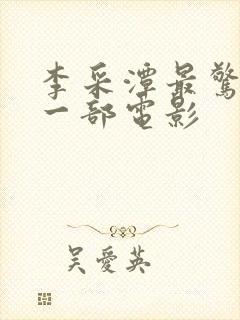 李采潭最驚
一部電影
吳愛英